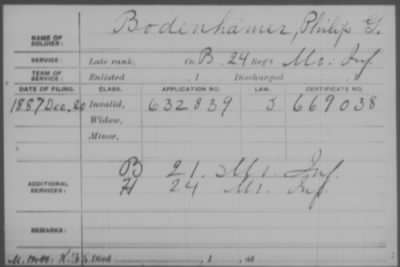 NAME OF SOLDIER: Bodenhamer, Philip G.
SERVICE: Late rank, Co B. 24 Reg't Mo. Inf
TERM OF SERVICE: Enlisted , 1 Discharged , 1
DATE OF FILING. CLASS. APPLICATION NO. LAW. CERTIFICATE NO.
1887 Dec. 20 Invalid, 632839 J 669038
Widow,
Minor,
ADDITIONAL SERVICES: B 21. Mo. Inf.
H 24 Mo. Inf.
REMARKS:
Died , 1 , at